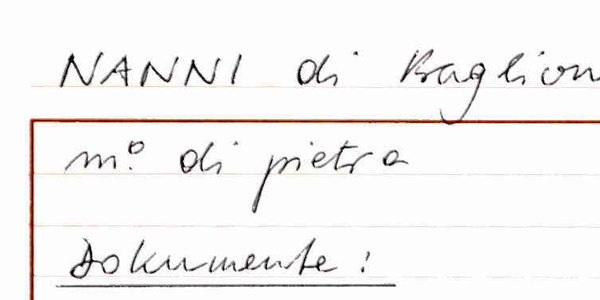 NANNI di Baglion
m.º di pietra
Dokumente: